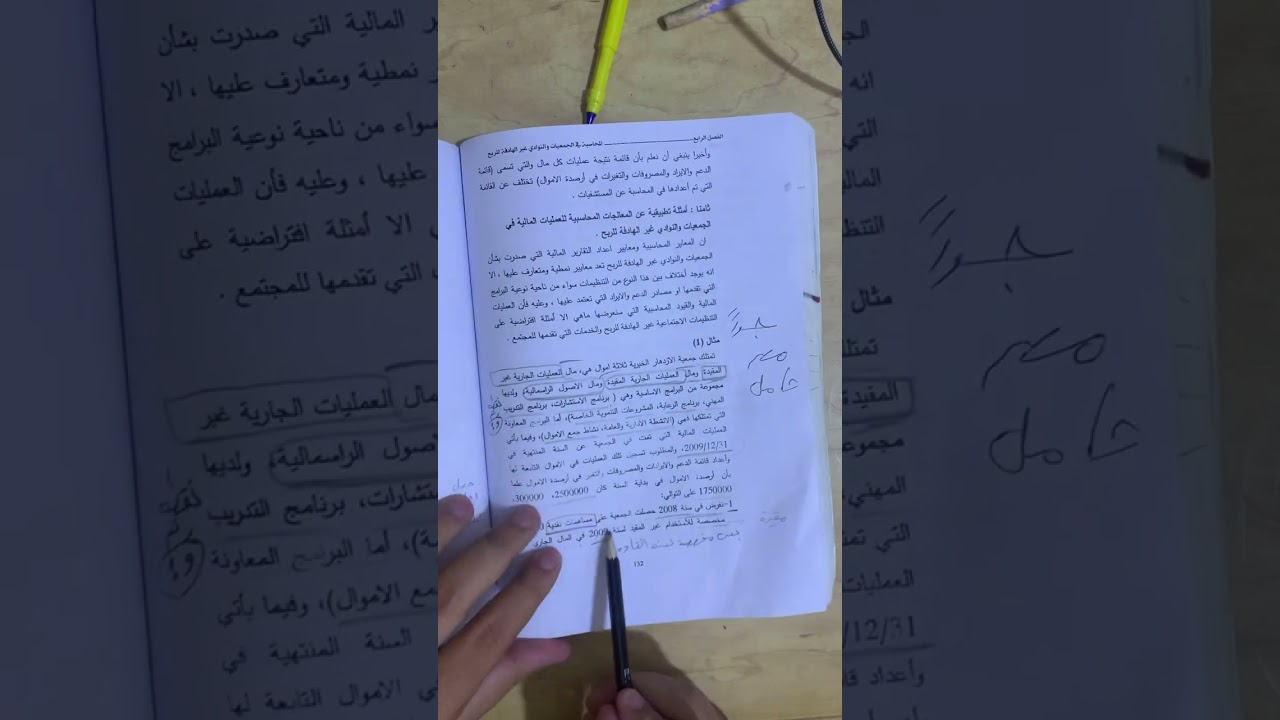 الفصل الرابع المحاسبة في الجمعيات والنوادي غير الهادفة للربح
وأخيرا ينبغي أن نعلم بأن قائمة نتيجة عمليات كل مال والتي تسمى (قائمة
الدعم والايراد والمصروفات والتغيرات في أرصدة الاموال) تختلف عن القائمة
التي تم أعدادها في المحاسبة عن المستشفيات .
ثامنا : أمثلة تطبيقية عن المعالجات المحاسبية للعمليات المالية في
الجمعيات والنوادي غير الهادفة للربح .
ان المعايير المحاسبية ومعايير اعداد التقارير المالية التي صدرت بشأن
الجمعيات والنوادي غير الهادفة للربح تعد معايير نمطية ومتعارف عليها ، الا
انه يوجد أختلاف بين هذا النوع من التنظيمات سواء من ناحية نوعية البرامج
التي تقدمها او مصادر الدعم والايراد التي تعتمد عليها ، وعليه فأن العمليات
المالية والقيود المحاسبية التي سنعرضها ماهي الا أمثلة افتراضية على
التنظيمات الاجتماعية غير الهادفة للربح والخدمات التي تقدمها للمجتمع .
مثال (1)
تمتلك جمعية الازدهار الخيرية ثلاثة اموال هي، مال العمليات الجارية غير
المقيدة ومال العمليات الجارية المقيدة ومال الاصول الراسمالية، ولديها
مجموعة من البرامج الاساسية وهي ( برنامج الاستشارات، برنامج التدريب
المهني، برنامج الرعاية، المشروعات التنموية الخاصة)، أما البرامج المعاونة
التي تمتلكها فهي (الانشطة الأدارية والعامة، نشاط جمع الاموال)، وفيما يأتي
العمليات المالية التي تمت في الجمعية عن السنة المنتهية في
2009/12/31، والمطلوب تسجيل تلك العمليات في الاموال التابعة لها
وأعداد قائمة الدعم والايرادات والمصروفات والتغير في أرصدة الاموال علما
بأن أرصدة الاموال في بداية السنة كان 2500000، 300000،
1750000 على التوالي:
1-نفرض في سنة 2008 حصلت الجمعية على مساهمات نقدية
مخصصة للأستخدام غير المقيد لسنة 2009 في المال الجاري
132
جداً
مقيدة